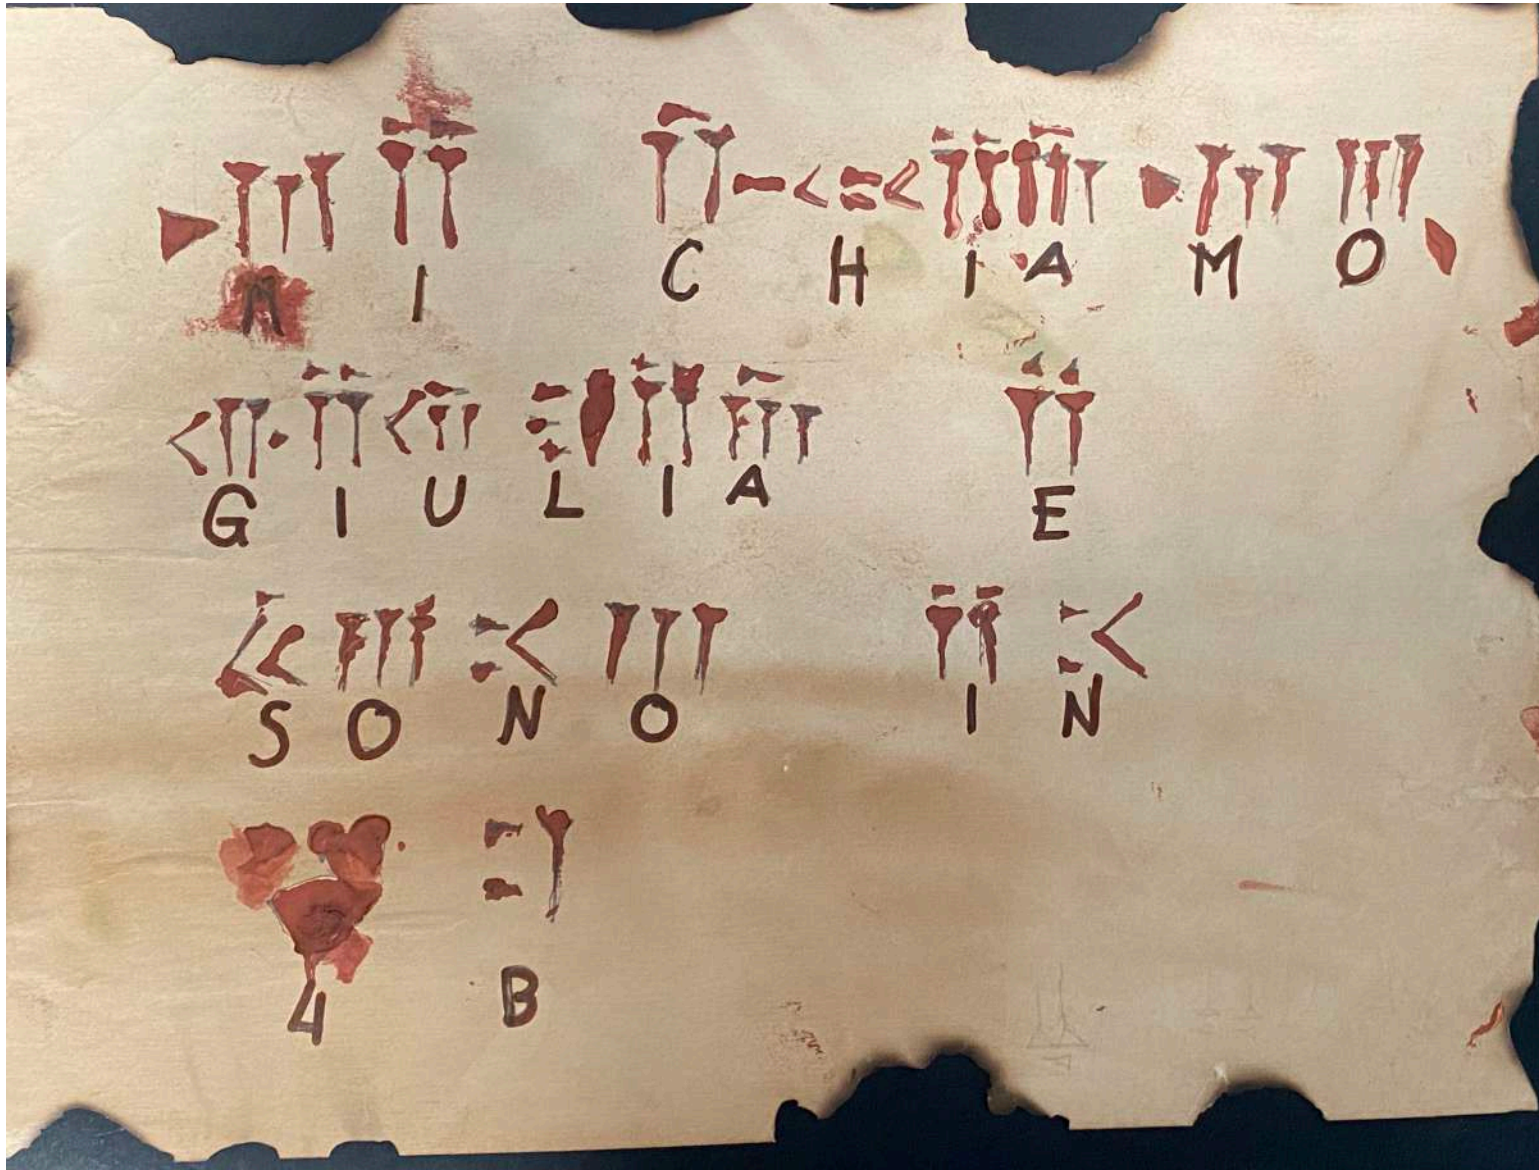 MI CHIAMO
GIULIA E
SONO IN
4 B